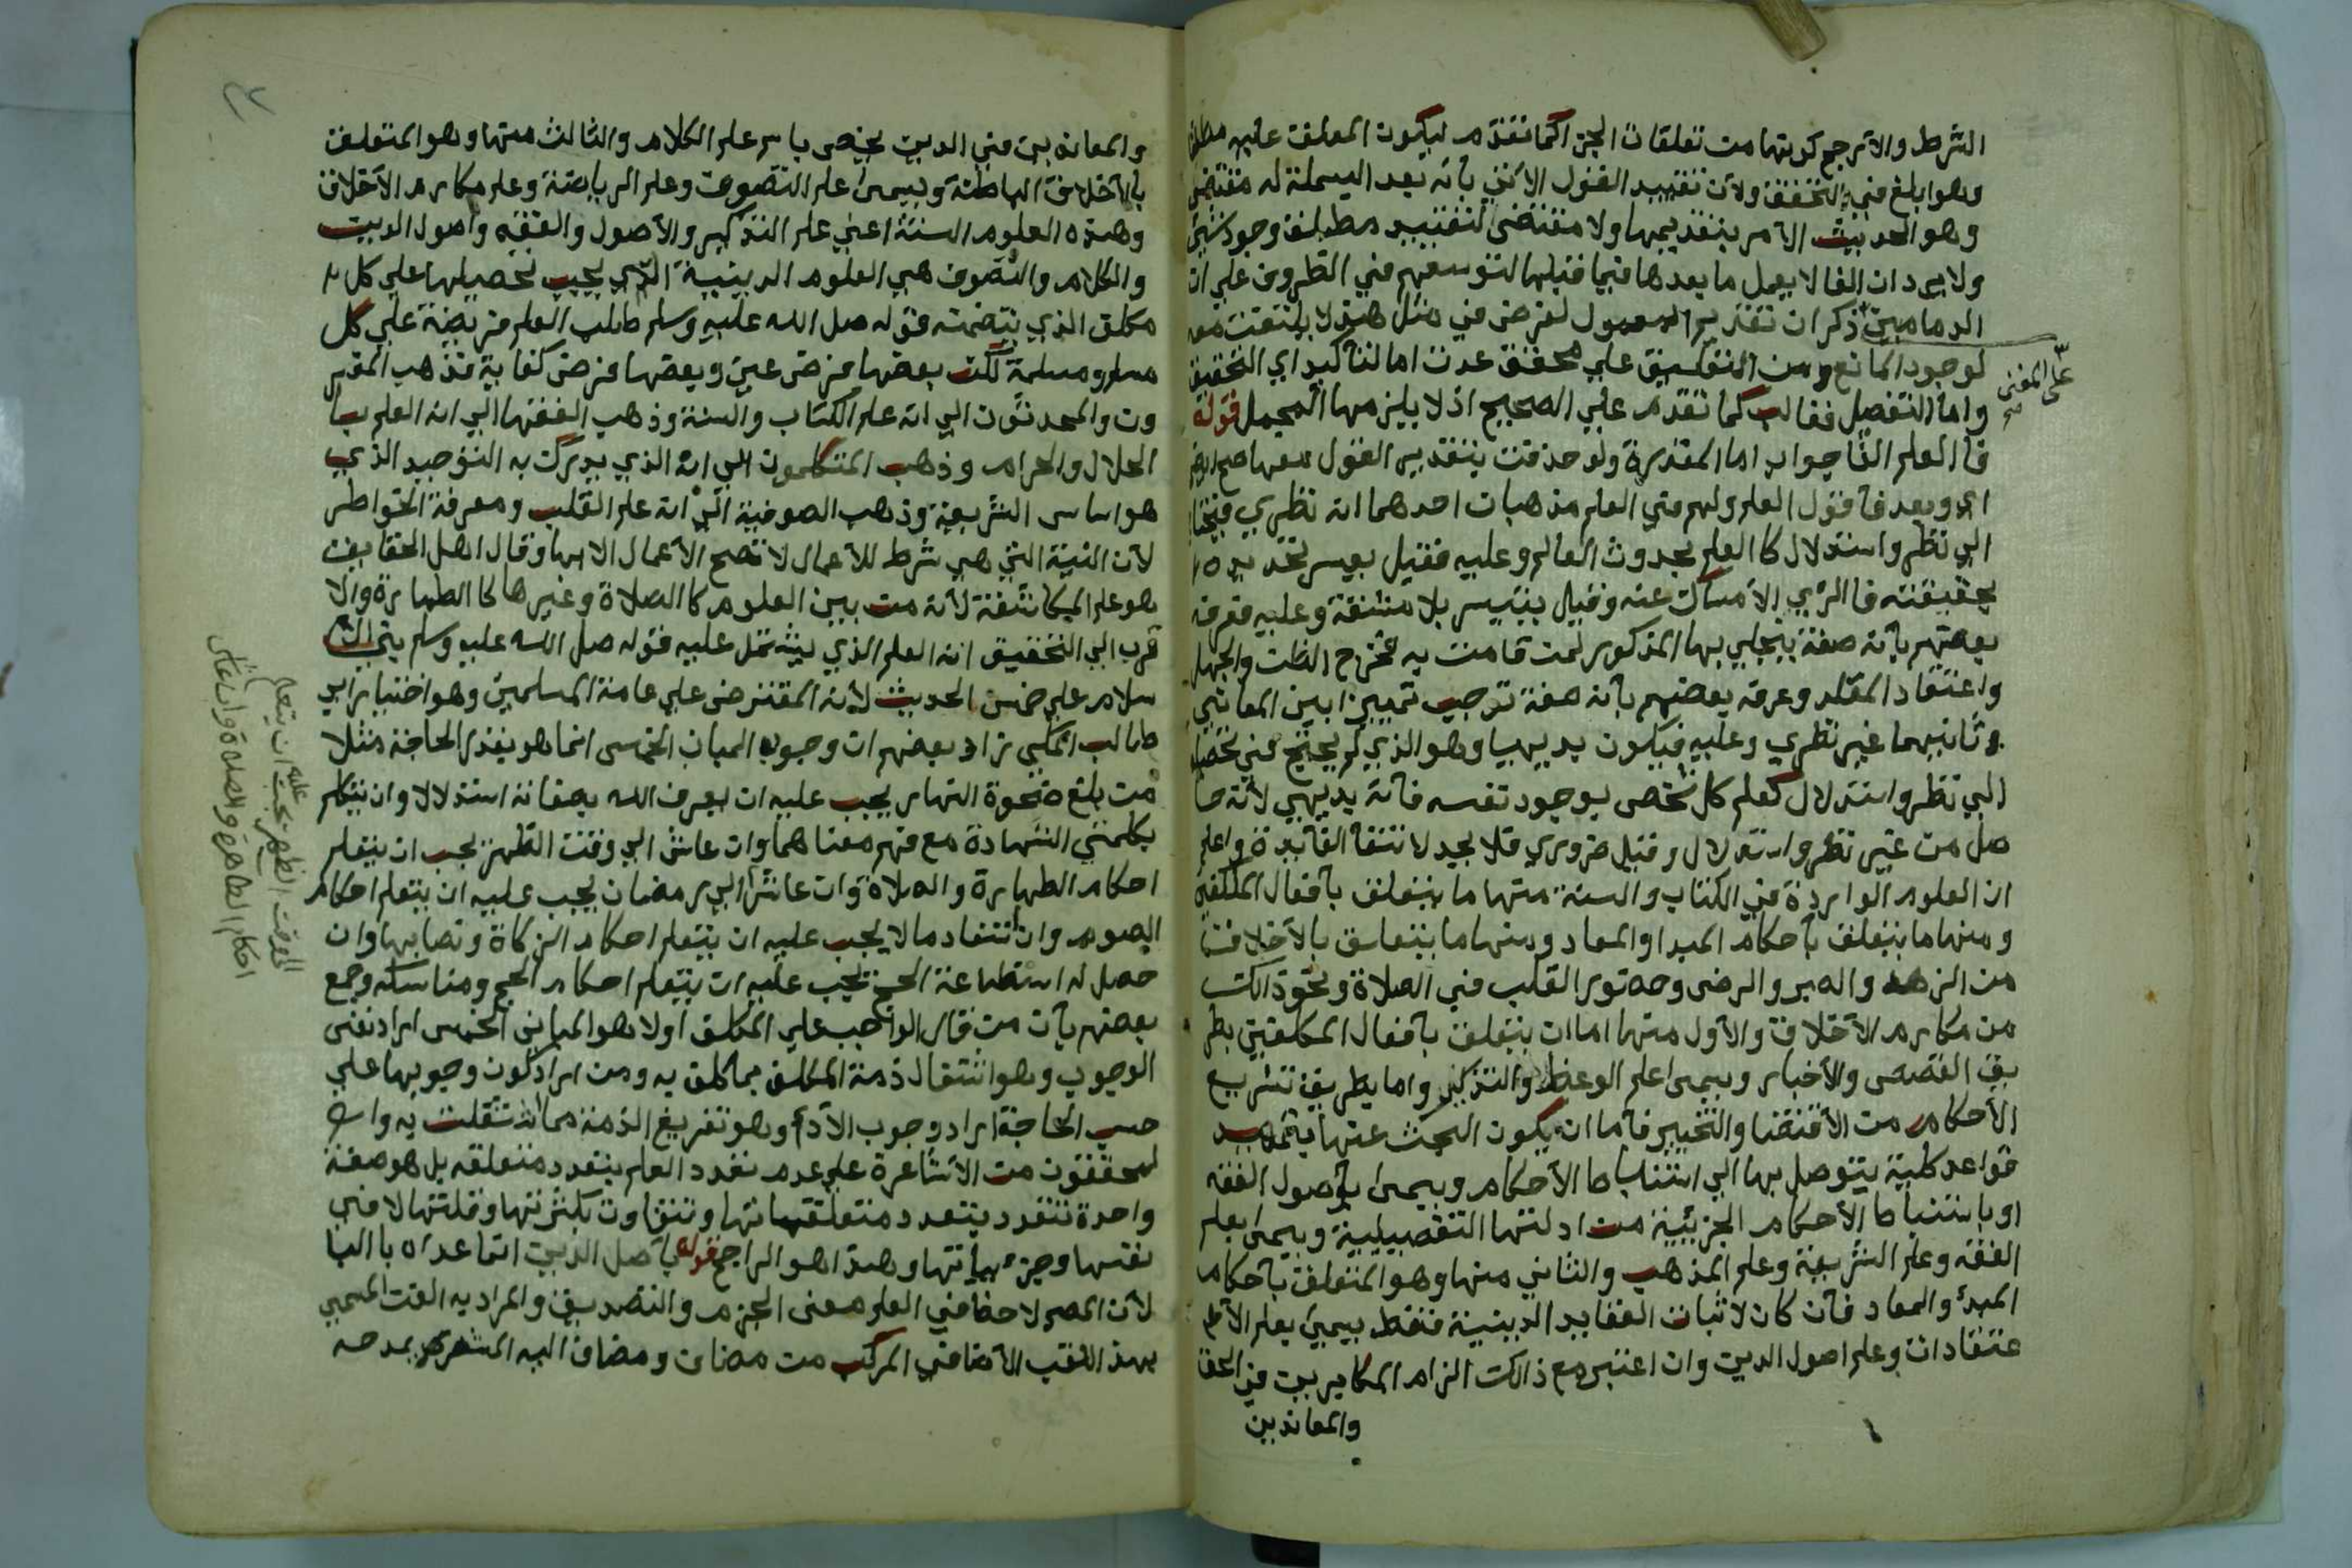 الشرط والأرجح كونها من تعلقات الجزا كما تقدم ليكون المعلق عليه مطلقا
وهو ابلغ في التحقق ولأن تقييد القول الأتي بأنه بعد البسملة له مقتضي
وهو الحديث الآمر بتقديمها ولا مقتضى لتقييد مطلق وجود شي
ولا يرد ان الفا لا يعمل ما بعدها فيما قبلها لتوسعهم في الظروف علي ان
الدماميني ذكر ان تقدير المعمول لغرض في مثل هذا لا يلتفت معه
لوجود المانع ومن التعليق علي محقق عدت اما لتأكيد اي التحقيق
علي المغني صح
واما التفصيل فغالب كما تقدم علي الصحيح اذ لا يلزمها المجمل قوله
فا العلم الفا جواب اما المقدرة ولو حذفت بتقدير القول معها صح ايضا
اي وبعد فأقول العلم ولهم في العلم مذهبات احدهما انه نظري فيحتاج
الي نظر واستدلال كا العلم بحدوث العالم وعليه فقيل يعسر تحديده
بحقيقته فا الرأي الأمساك عنه وقيل يتيسر بلا مشقة وعليه فعرفه
بعضهم بأنه صفة يتجلي بها المذكور لمن قامت به فخرج الظن والجهل
واعتقاد المقلد وعرفه بعضهم بأنه صفة توجب تمييزا بين المعاني
وثانيهما غير نظري وعليه فيكون بديهيا وهو الذي لم يحتج في تحصيله
الي نظر واستدلال كعلم كل شخص بوجود نفسه فأنه بديهي لأنه حا
صل من غير نظر واستدلال وقيل ضروري فلا يحد لانتفا الفايدة واعلم
ان العلوم الواردة في الكتاب والسنة منها ما يتعلق بأفعال المكلفين
ومنها ما يتعلق بأحكام المبدا والمعاد ومنها ما يتعلق بالأخلاق
من الزهد والصبر والرضى وحضور القلب في الصلاة ونحو ذالك
من مكارم الأخلاق والأول منها اما ان يتعلق بأفعال المكلفين بطر
يق القصص والأخبار ويسمى علم الوعظ والتذكير واما بطريق تشريع
الأحكام من الأقتضا والتخيير فأما ان يكون البحث عنها بتمهيد
قواعد كلية يتوصل بها الي استنباط الأحكام ويسمى بأصول الفقه
او باستنباط الأحكام الجزئية من ادلتها التفصيلية ويسمى بعلم
الفقه وعلم الشريعة وعلم المذهب والثاني منها وهو المتعلق بأحكام
المبدأ والمعاد فأن كان لاثبات العقايد الدينية فقط يسمى بعلم الأ
عتقادات وعلم اصول الدين وان اعتبر مع ذالك الزام المكابرين في الحق
والمعاندين
والمعاندين في الدين يختص باسم علم الكلام والثالث منها وهو المتعلق
بالأخلاق الباطنة ويسمى علم التصوف وعلم الرياضة وعلم مكارم الأخلاق
وهذه العلوم الستة اعني علم التذكير والأصول والفقه واصول الدين
والكلام والتصوف هي العلوم الدينية الذي يجب تحصيلها علي كل
مكلف الذي يتضمنه قوله صل الله عليه وسلم طلب العلم فريضة علي كل
مسلم ومسلمة لكن بعضها فرض عين وبعضها فرض كفاية فذهب المفسر
ون والمحدثون الي انه علم الكتاب والسنة وذهب الفقها الي انه العلم با
الحلال والحرام وذهب المتكلمون الي انه الذي يدرك به التوحيد الذي
هو اساس الشريعة وذهب الصوفية الي انه علم القلب ومعرفة الخواطر
لأن النية التي هي شرط للأعمال لا تصح الأعمال الا بها وقال اهل الحقايق
هو علم المكاشفة لأنه من بين العلوم كا الصلاة وغيرها كا الطهارة والا
قرب الي التحقيق انه العلم الذي يشتمل عليه قوله صل الله عليه وسلم بني الا
سلام علي خمس الحديث لأنه المفترض علي عامة المسلمين وهو اختيار ابي
طالب المكي زاد بعضهم ان وجوب المباني الخمس انما هو بقدر الحاجة مثلا
من بلغ ضحوة النهار يجب عليه ان يعرف الله بصفاته استدلالا وان يتكلم
بكلمتي الشهادة مع فهم معناهما وان عاش الي وقت الظهر يجب ان يتعلم
احكام الطهارة والصلاة وان عاش الي رمضان يجب عليه ان يتعلم احكام
الصوم وان استفاد مالا يجب عليه ان يتعلم احكام الزكاة ونصابها وان
حصل له استطاعة الحج يجب عليه ان يتعلم احكام الحج ومناسكه وجمع
بعضهم بأن من قال الواجب علي المكلف اولا هو المباني الخمس اراد نفس
الوجوب وهو اشتغال ذمة المكلف بما كلف به ومن اراد كون وجوبها علي
حسب الحاجة اراد وجوب الأدأ وهو تفريغ الذمة مما اشتغلت به وا
لمحققون من الأشاعرة علي عدم تعدد العلم بتعدد متعلقه بل هو صفة
واحدة تتعدد بتعدد متعلقهاتها وتتفاوت بكثرتها وقلتها لا في
نفسها وجزءياتها وهذا هو الراجح قوله بأصل الدين انما عداه با البا
لأن المص لاحظ في العلم معنى الجزم والتصديق والمراد به الفن المسمي
بهذ اللقب الأضافي المركب من مضاف ومضاف اليه المشعر بمدحه
الي وقت الظهر يجب عليه ان يتعلم
احكام الطهارة والصلاة وان عاش